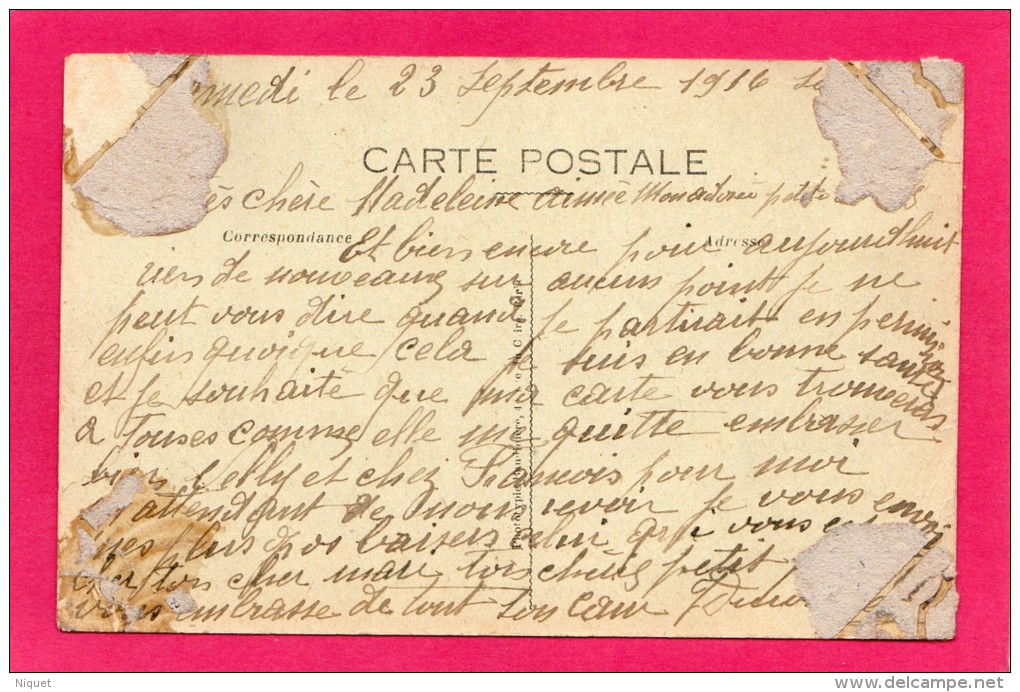 medi le 23 Septembre 1916
CARTE POSTALE
chère Madeleine Aimée Mon adorée petite
Correspondance Adresse
Et bien encore pour aujourdhuit
rien de nouveaux sur aucun point je ne
peut vous dire quand je partirait en permi
ssion
enfin quoique cela je suis en bonne santé
et je souhaite que ma carte vous trouveras
a Toutes comme elle me quitte embrasser
bien Nelly et chez François pour moi
attendant de nous revoir je vous envoi
mes plus gos baisers celui que vous
cher ton cher mari ton chéri petit
vous embrasse de tout son cœur
Phototypie
Niquet